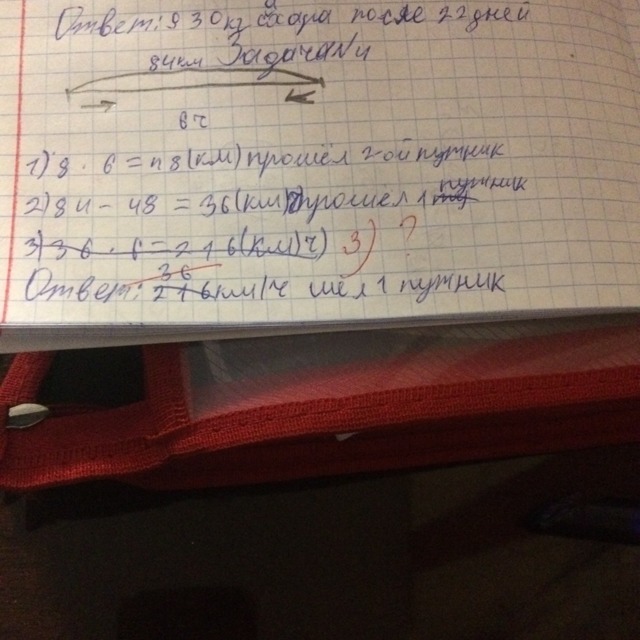 Ответ: 930кг сахара после 22 дней
84км Задача№4
6ч
1) 8 · 6 = 48(км) прошёл 2ой путник
2) 84 - 48 = 36(км) прошёл 1 путник
3) 36 · 6 = 216(км/ч) 3) ?
36
Ответ: 216км/ч шёл 1 путник